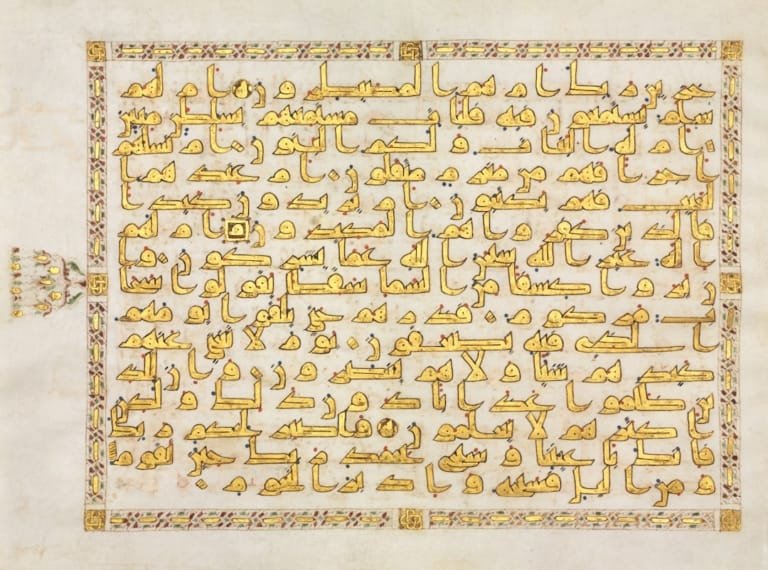 خزين ربك ام هم المصيطرون ام لهم
سلم يستمعون فيه فليات مستمعهم بسلطن مبين
ام له البنت ولكم البنون ام تسلهم
اجرا فهم من مغرم مثقلون ام عندهم ا
لغيب فهم يكتبون ام يريدون كيدا
فالذين كفروا هم المكيدون ام لهم
اله غير الله سبحن الله عما يشركون وان
يروا كسفا من السما ساقطا يقولوا سحا
ب مركوم فذرهم حتى يلقوا يومهم
الذي فيه يصعقون يوم لا يغني عنهم
كيدهم شيا ولا هم ينصرون وان للذ
ين ظلموا عذابا دون ذلك ولكن
اكثرهم لا يعلمون واصبر لحكم ربك
فانك باعيننا وسبح بحمد ربك حين تقوم
ومن اليل فسبحه وادبر النجوم